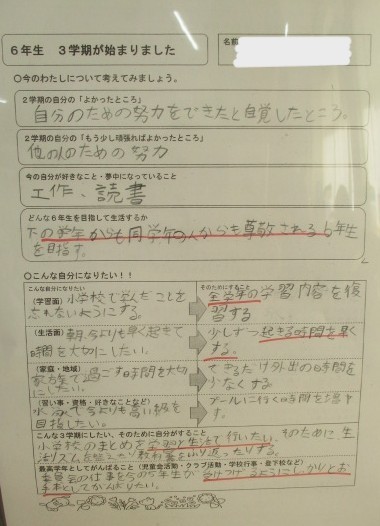 6年生　3学期が始まりました
名前
○今のわたしについて考えてみましょう。
2学期の自分の「よかったところ」
自分のための努力をできたと自覚したところ。
2学期の自分の「もう少し頑張ればよかったところ」
他の人のための努力
今の自分が好きなこと・夢中になっていること
工作、読書
どんな6年生を目指して生活するか
下の学年からも同学年の人からも尊敬される6年生
を目指す。
○こんな自分になりたい！！
こんな自分になりたい
(学習面) 小学校で学んだことを
忘れないようにする。
そのためにすること
全学年の学習内容を復
習する
(生活面) 朝、今よりも早く起きて
時間を大切にしたい。
少しずつ起きる時間を早く
する。
(家庭・地域)
家族で過ごす時間を大切
にしたい。
できるだけ外出の時間を
少なくする
(習い事・資格・好きなことなど)
水泳で今よりも高い級を
目指したい。
プールに行く時間を増や
す。
こんな3学期にしたい、そのために自分がすること
小学校のまとめを学習と生活で行いたい。そのために、生
活リズムを
最高学年としてがんばること（児童会活動・クラブ活動・学校行事・登下校など）
委員会の仕事を今の5年生が